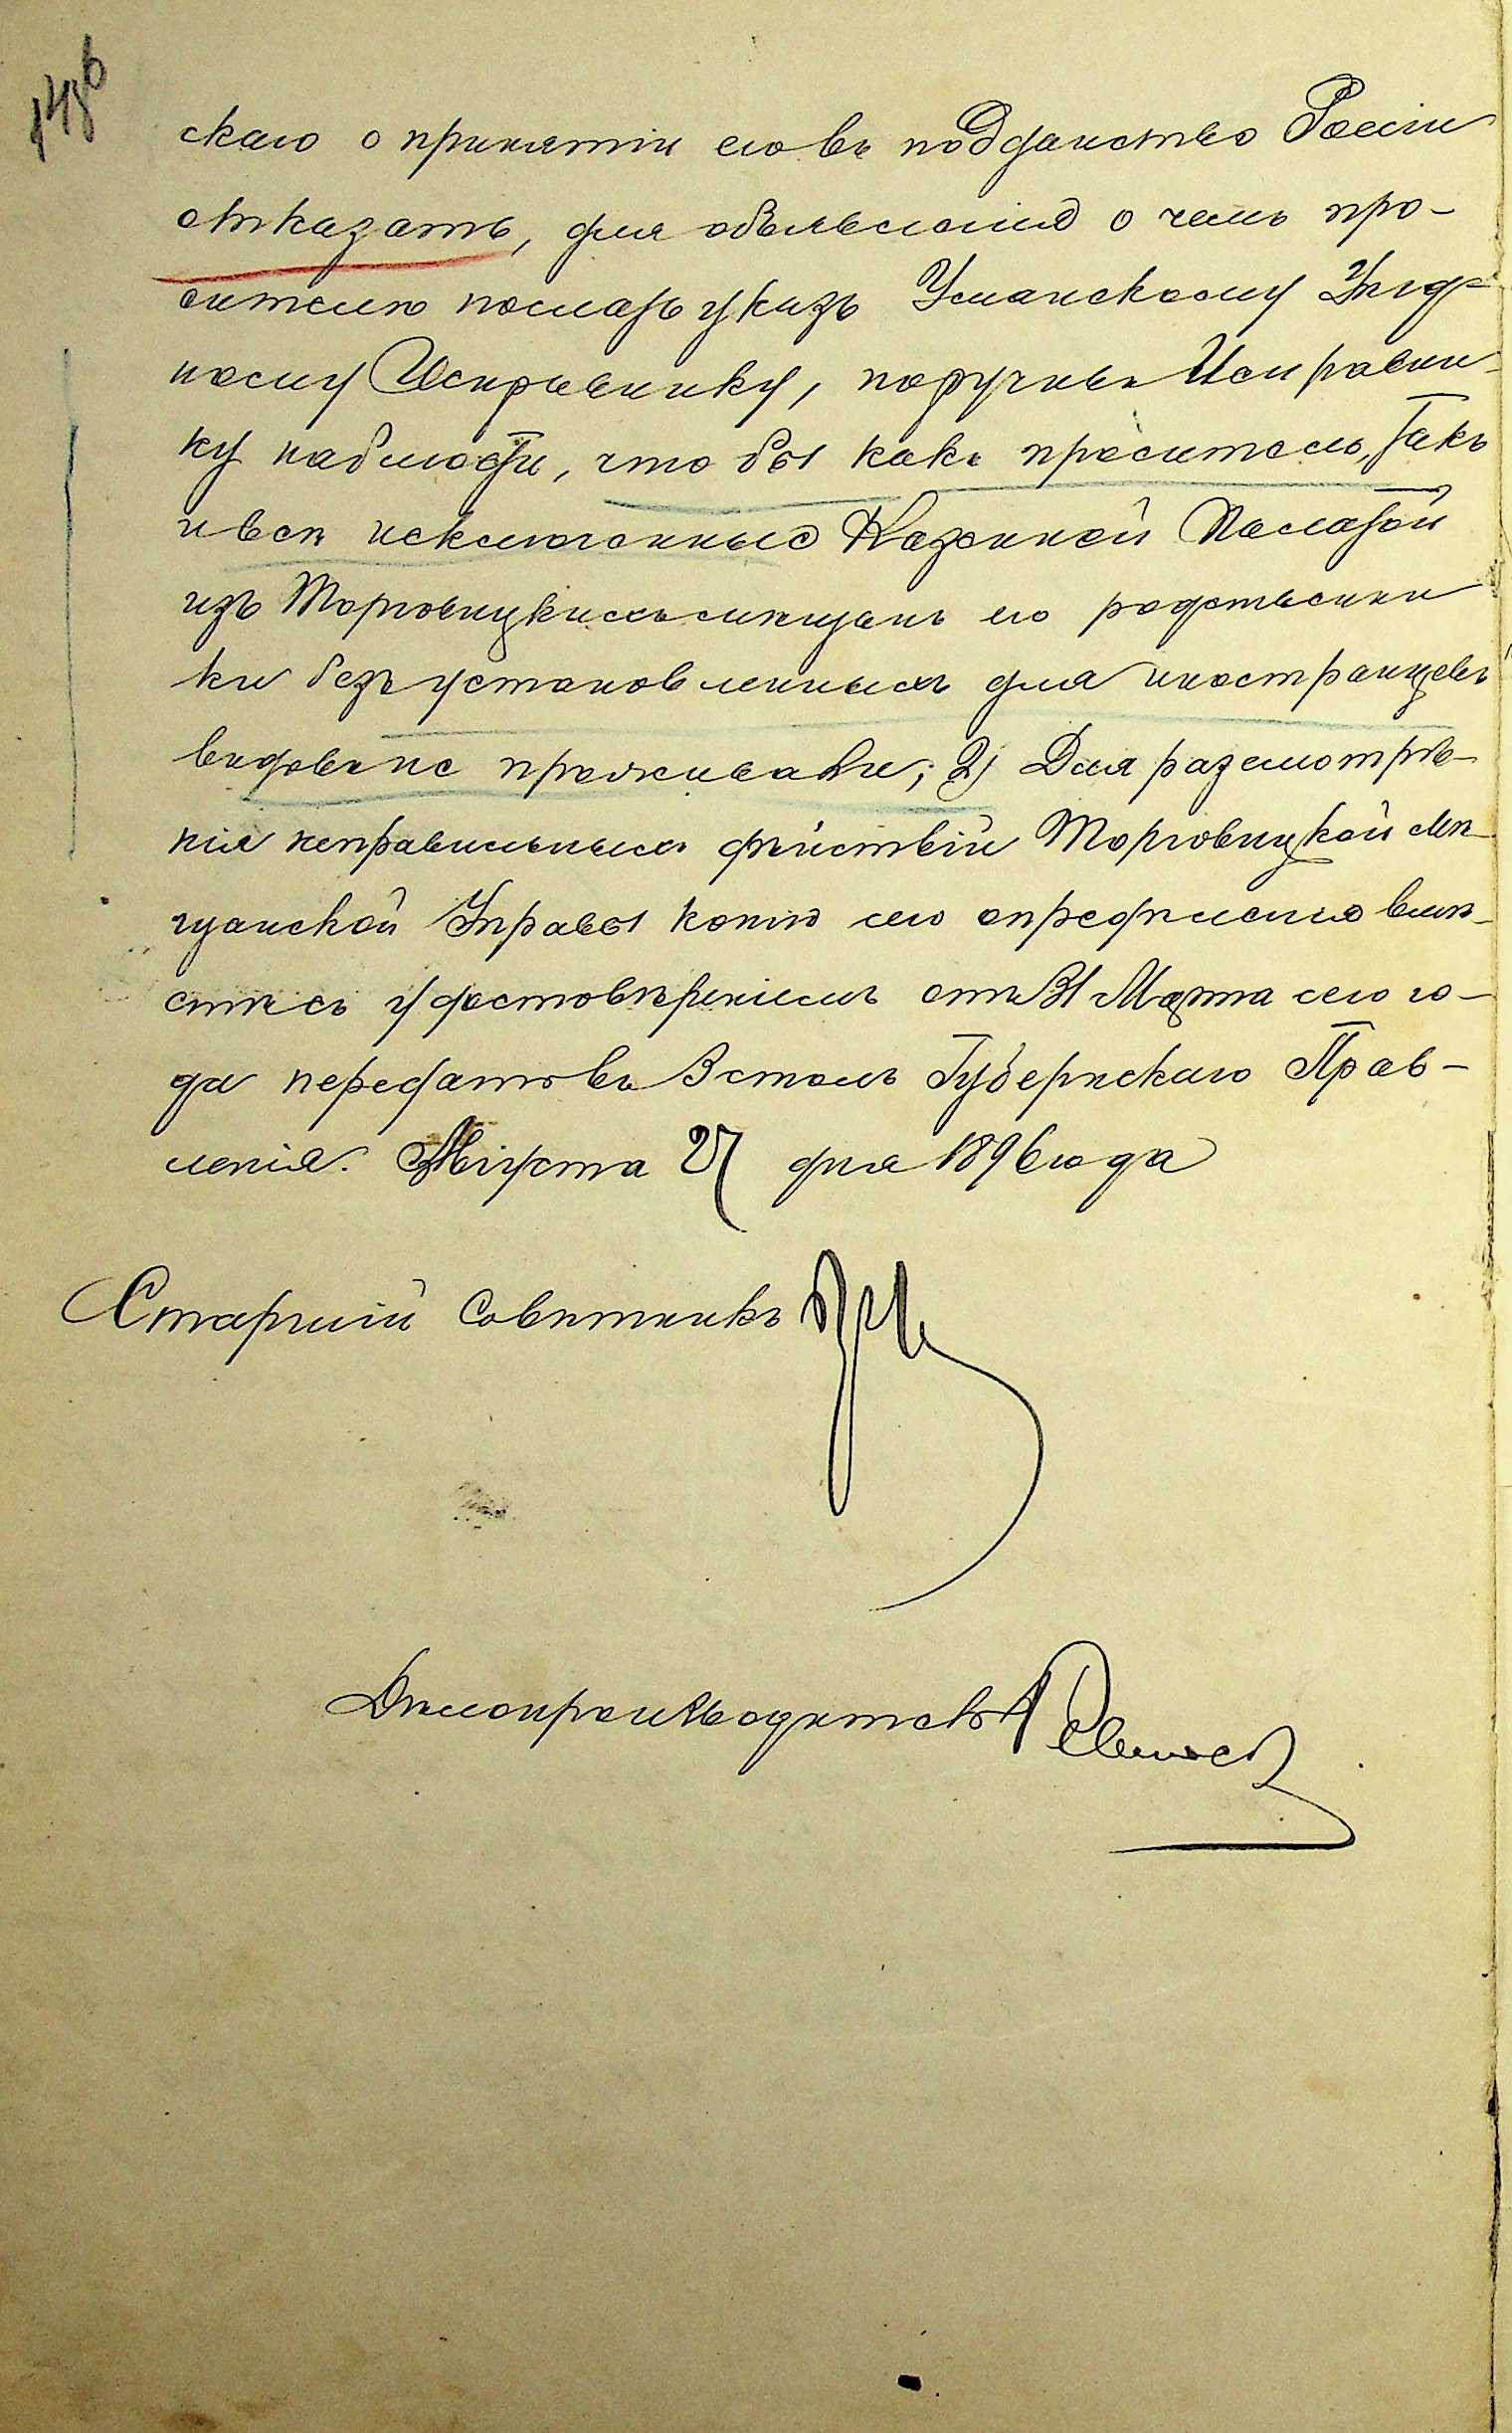 скаго о принятіи его въ подданство Россіи
отказать, для объявленія о чемъ про-
сителю послать указъ Уманскому Уѣзд-
ному Исправнику, поручивъ Исправни-
ку наблюсти, что бы какъ проситель, такъ
и всѣ исключенные Казенной Палатой
изъ Торговицкихъ мѣщанъ его родственни
ки безъ установленныхъ для иностранцевъ
видовъ не проживали; 2) Для разсмотрѣ-
нія неправильныхъ дѣйствій Торговицкой Мѣ-
щанской Управы копію сего опредѣленія вмѣ-
стѣ съ удостовѣреніемъ отъ 31 Марта сего го-
да передать въ 3 столъ Губернскаго Прав-
ленія. Августа 27 дня 1896 года
Старшій Совѣтникъ
Дѣлопроизводитель